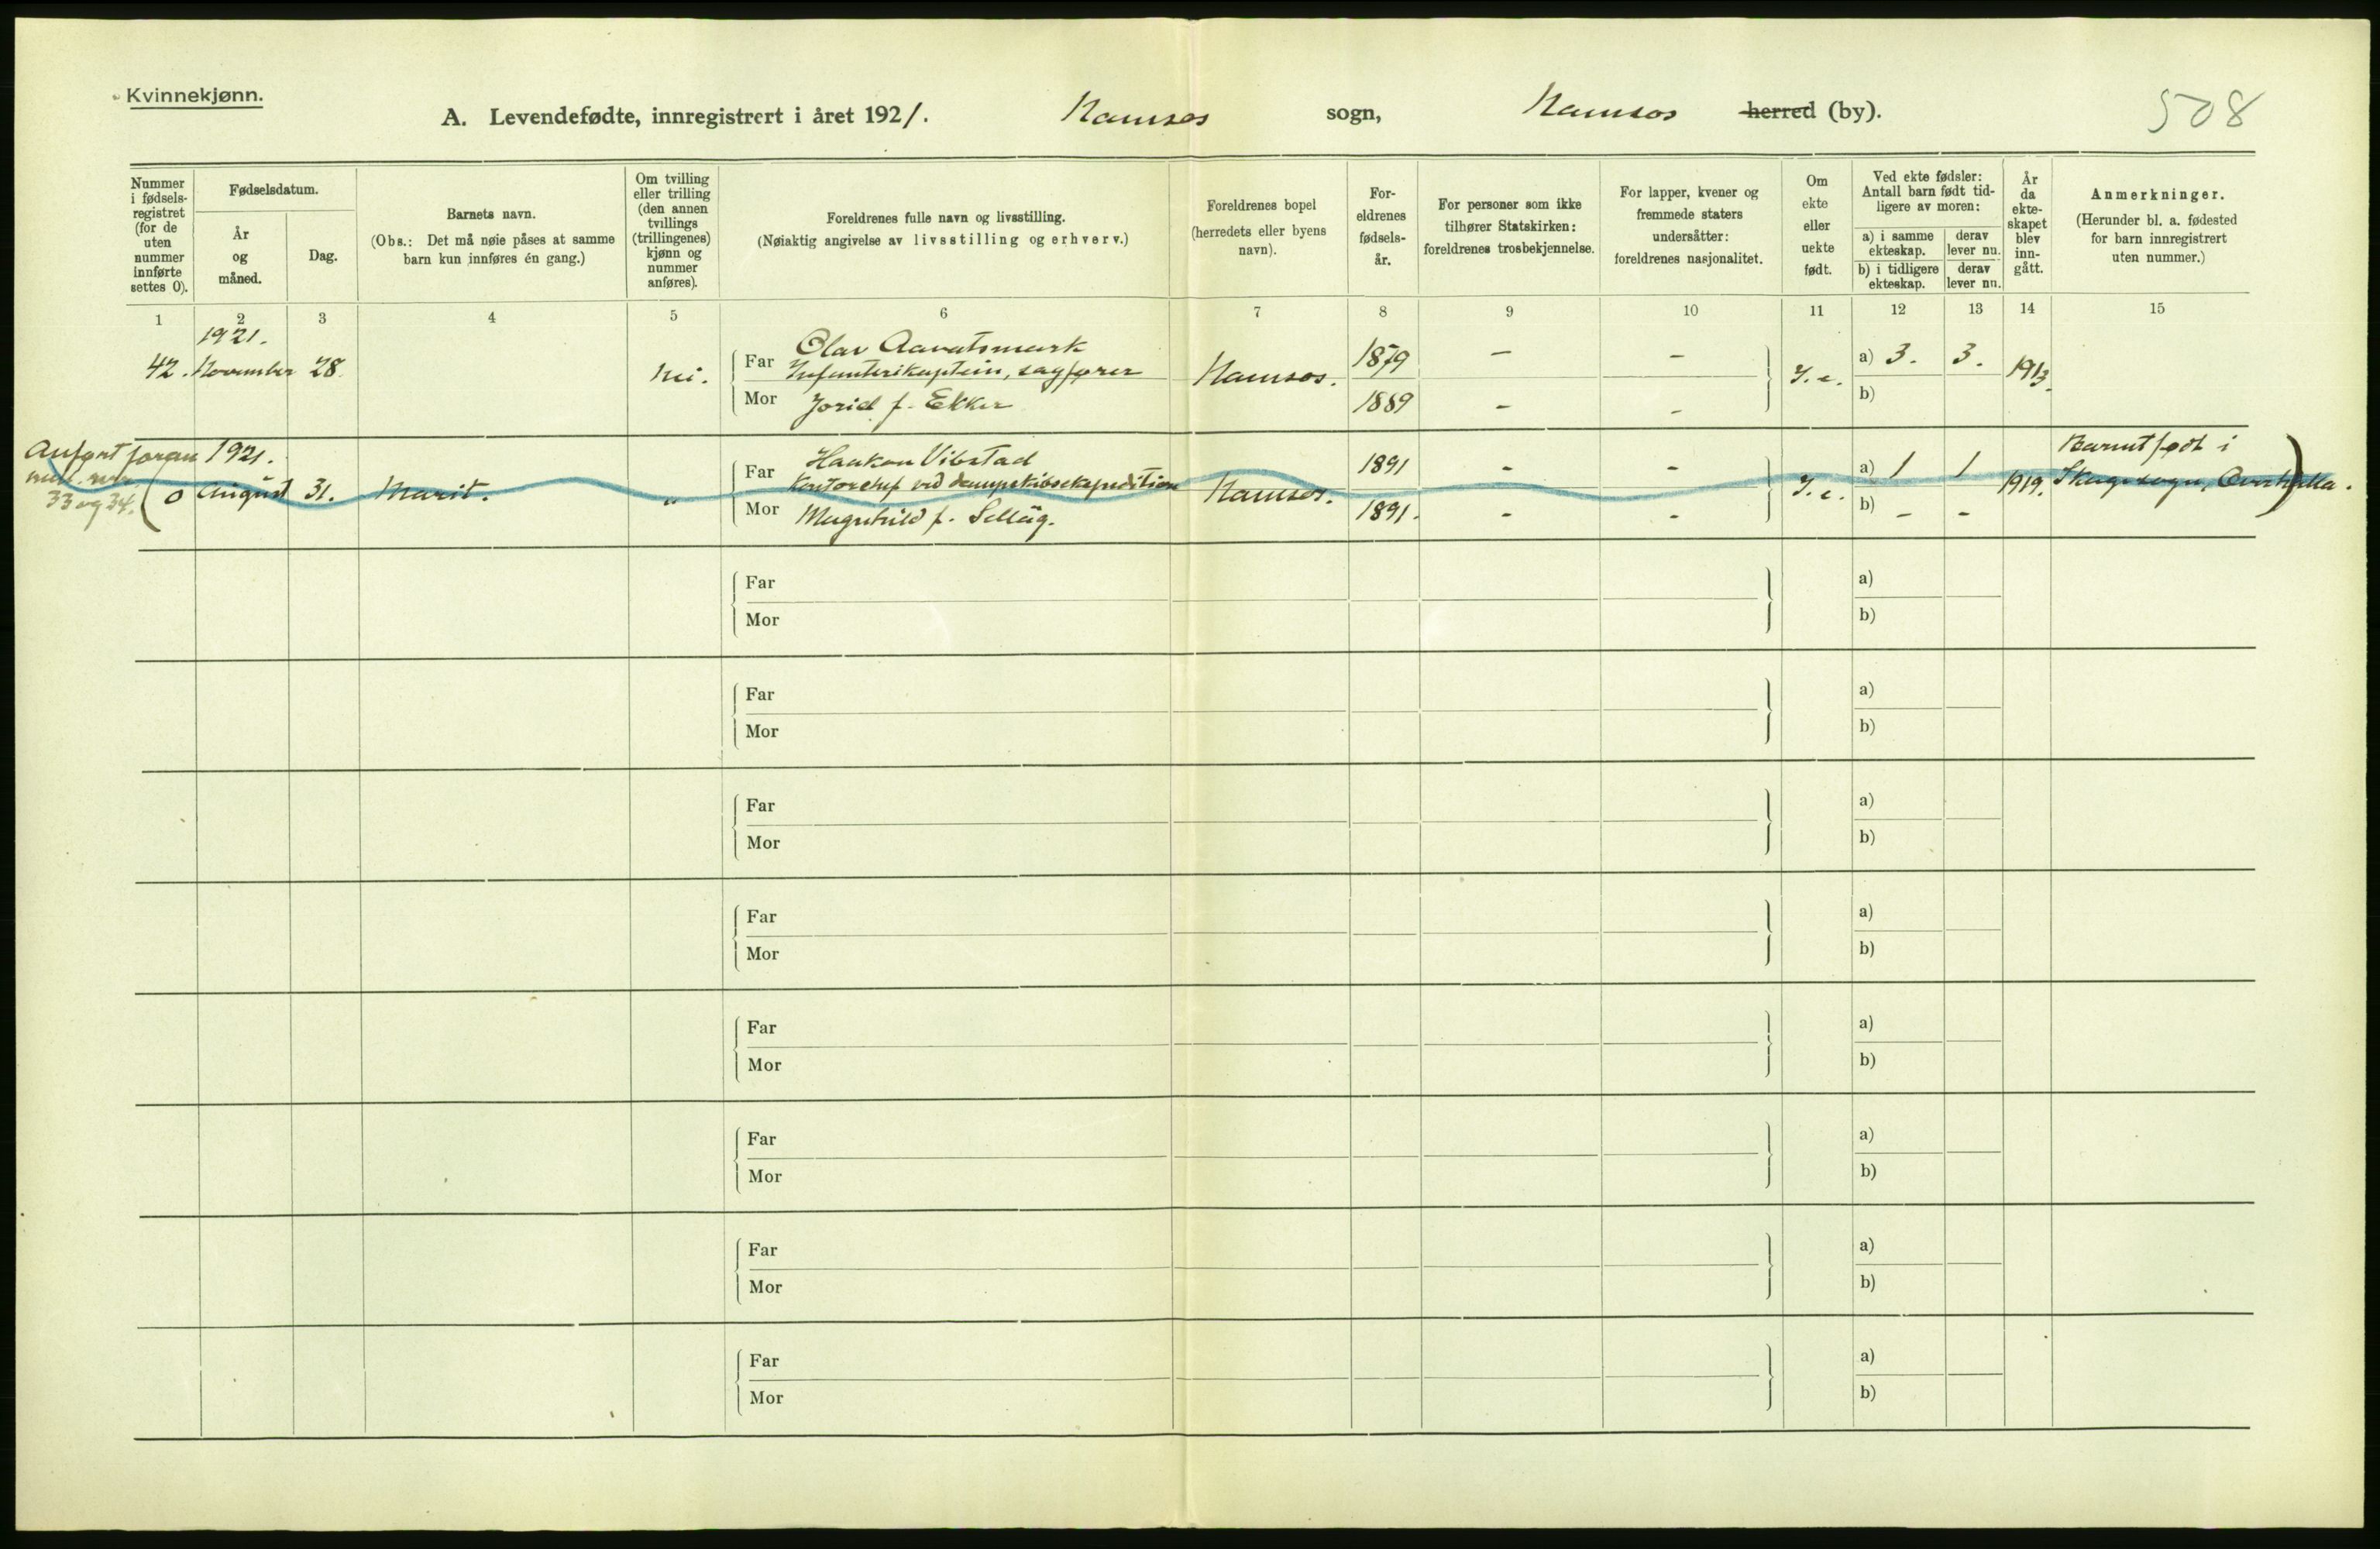 Kvinnekjønn.
A. Levendefødte, innregistrert i året 1921. Namsos sogn, Namsos herred (by).
508
Nummer i fødsels-registret (for de uten nummer innførte settes 0).
Fødselsdatum.
År og måned.
Dag.
Barnets navn.
(Obs.: Det må nøie påses at samme barn kun innføres én gang.)
Om tvilling eller trilling (den annen tvillings (trillingenes) kjønn og nummer anføres).
Foreldrenes fulle navn og livsstilling.
(Nøiaktig angivelse av livsstilling og erhverv.)
Foreldrenes bopel (herredets eller byens navn).
For-eldrenes fødsels-år.
For personer som ikke tilhører Statskirken: foreldrenes trosbekjennelse.
For lapper, kvener og fremmede staters undersåtter: foreldrenes nasjonalitet.
Om ekte eller uekte født.
Ved ekte fødsler: Antall barn født tid-ligere av moren:
a) i samme ekteskap.
derav lever nu.
b) i tidligere ekteskap.
derav lever nu.
År da ekte-skapet blev inn-gått.
Anmerkninger.
(Herunder bl. a. fødested for barn innregistrert uten nummer.)
1 2 3 4 5 6 7 8 9 10 11 12 13 14 15
1921.
42. November 28. Nei.
Far Olav Aavatsmark
Infanterikaptein, sagfører
Mor Jorid f. Ekker
Namsos. 1879 - -
1889 - -
I. e. a) 3. 3. 1913.
b)
Anført foran
33 og 34.
1921.
0 August 31. Marit. "
Far Haakon Vibstad
Kontorchef ved dampskibsekspedition
Mor Magnhild f. Selläg.
Namsos. 1891 - -
1891. - -
I. e. a) 1 1 1919.
b) - -
Barnet født i
Skage sogn, Overhalla.
Far
Mor
a)
b)
Far
Mor
a)
b)
Far
Mor
a)
b)
Far
Mor
a)
b)
Far
Mor
a)
b)
Far
Mor
a)
b)
Far
Mor
a)
b)
Far
Mor
a)
b)